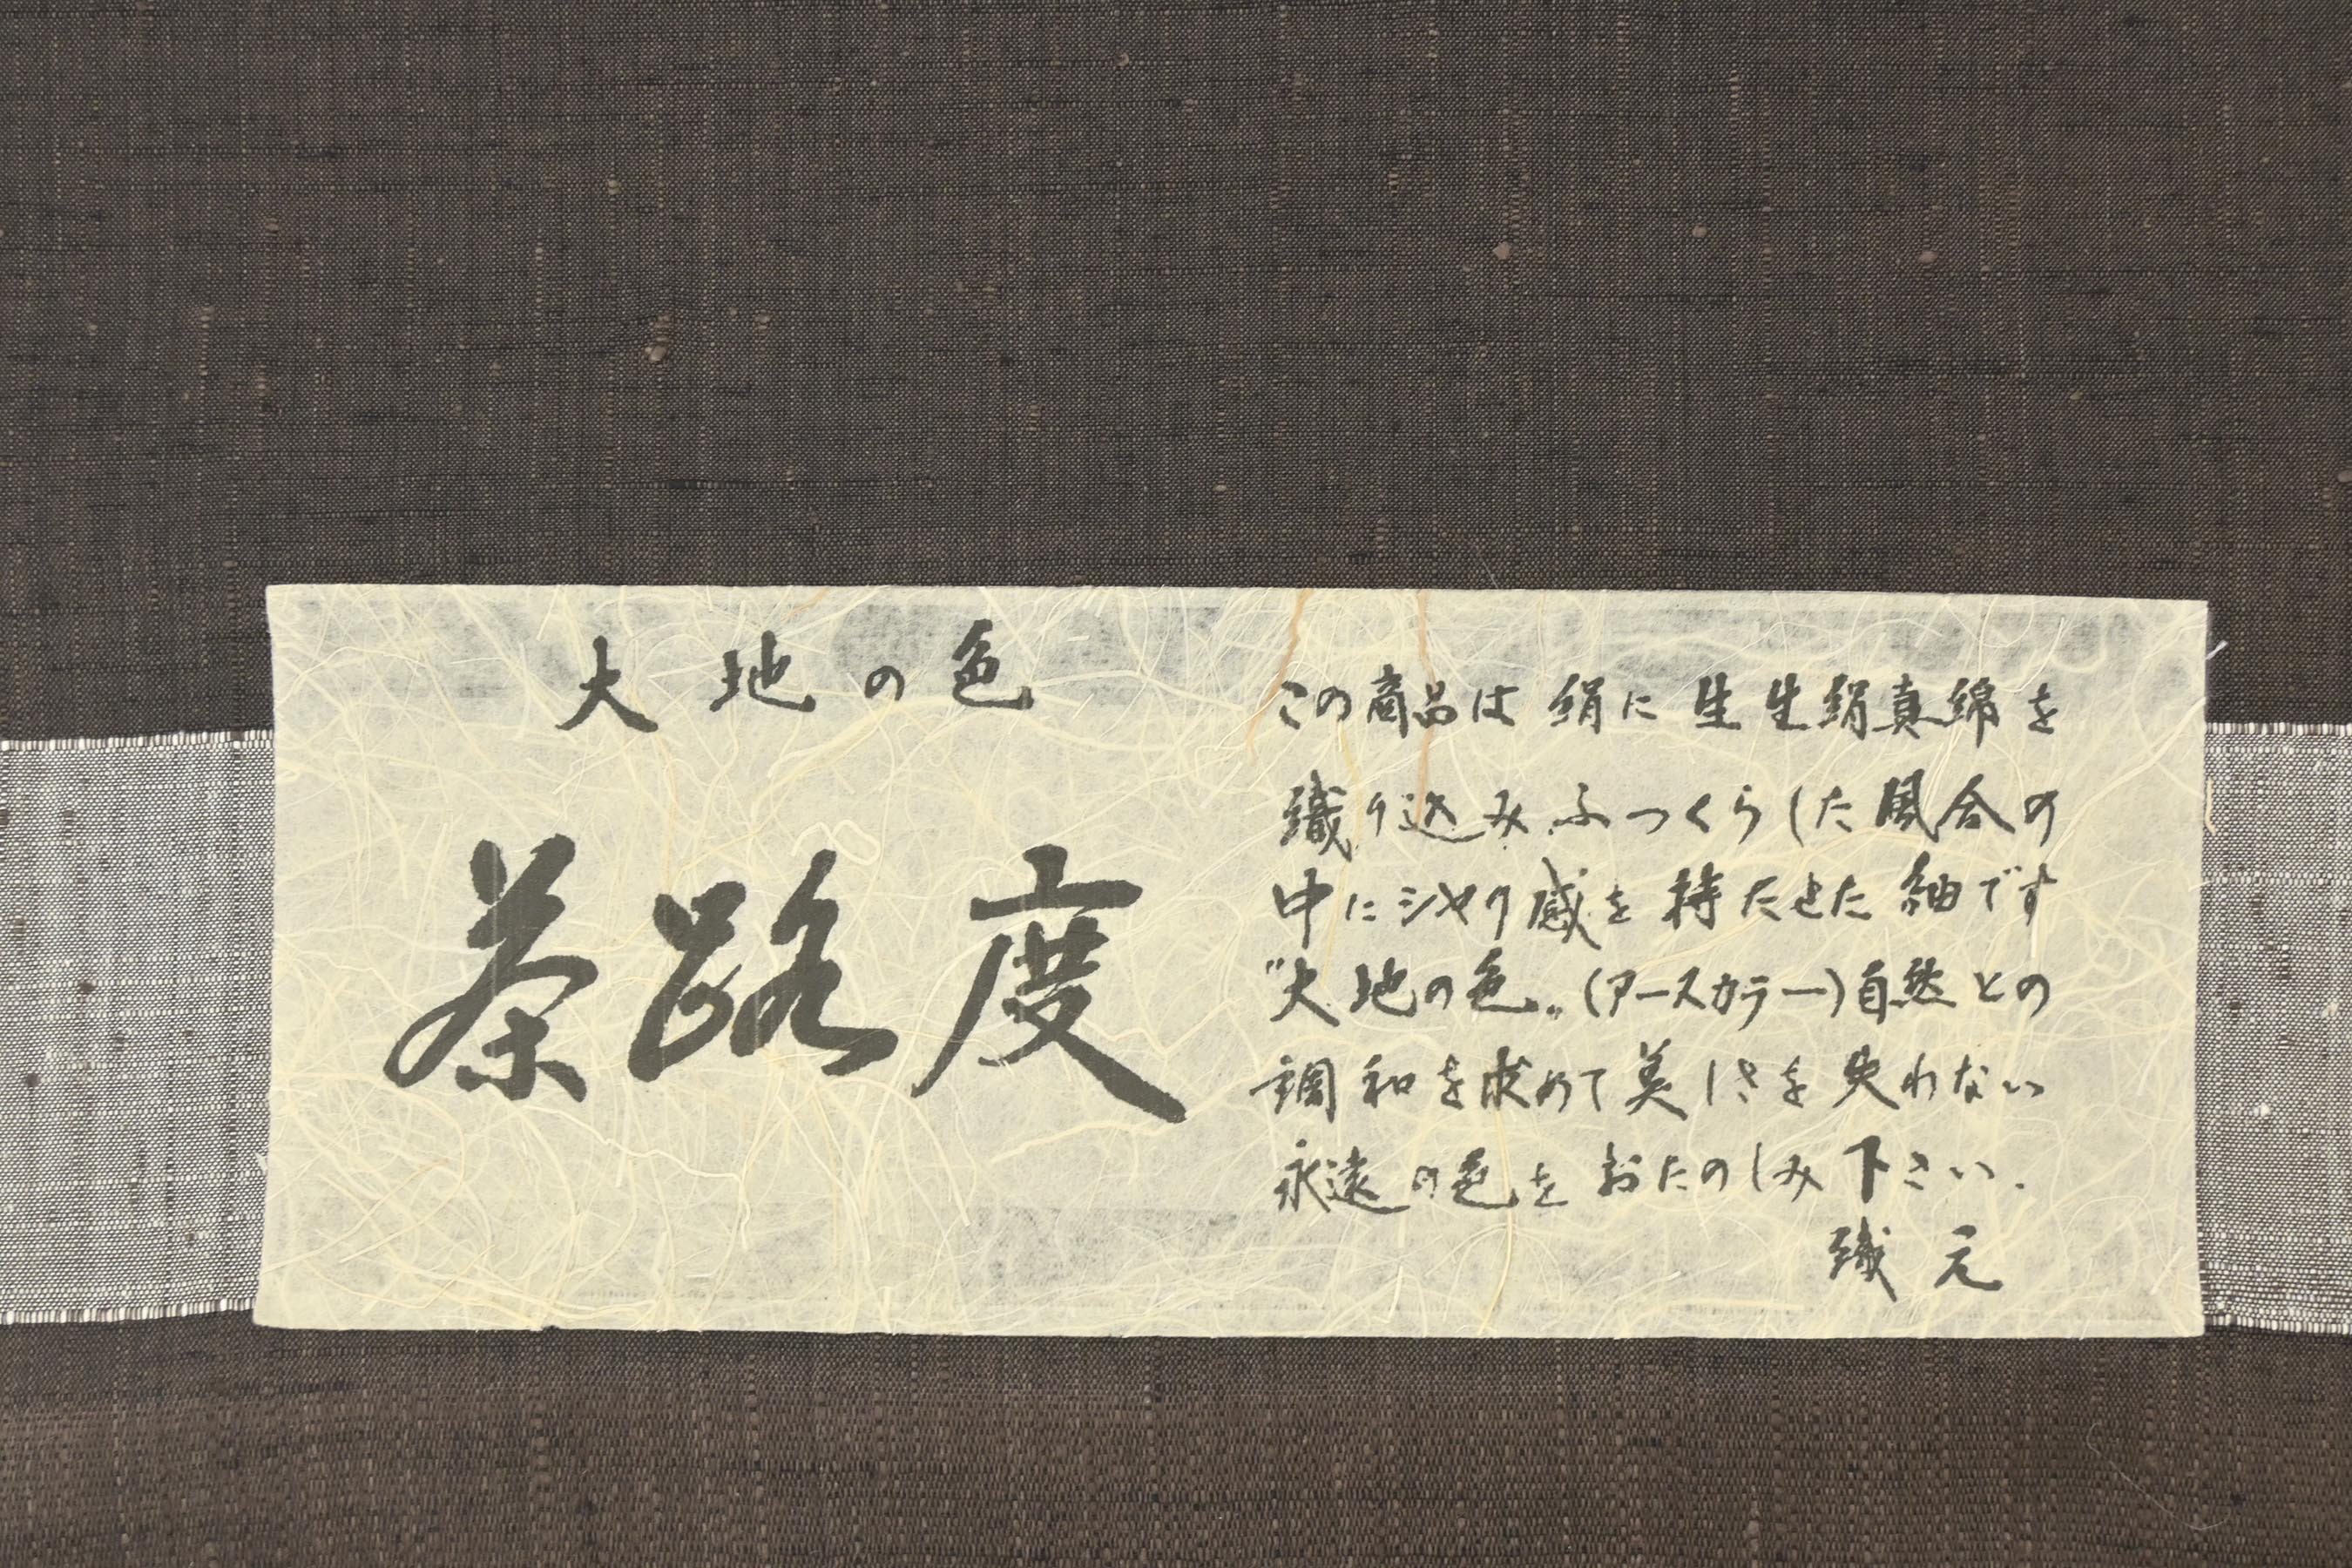 大地の色
茶路度
この商品は 絹に 生生絹真綿を
織り込み ふっくらした風合の
中にシャリ感を持たせた紬です
"大地の色"(アースカラー)自然との
調和を求めて美しさを失れない
永遠の色をおたのしみ下さい.
織元